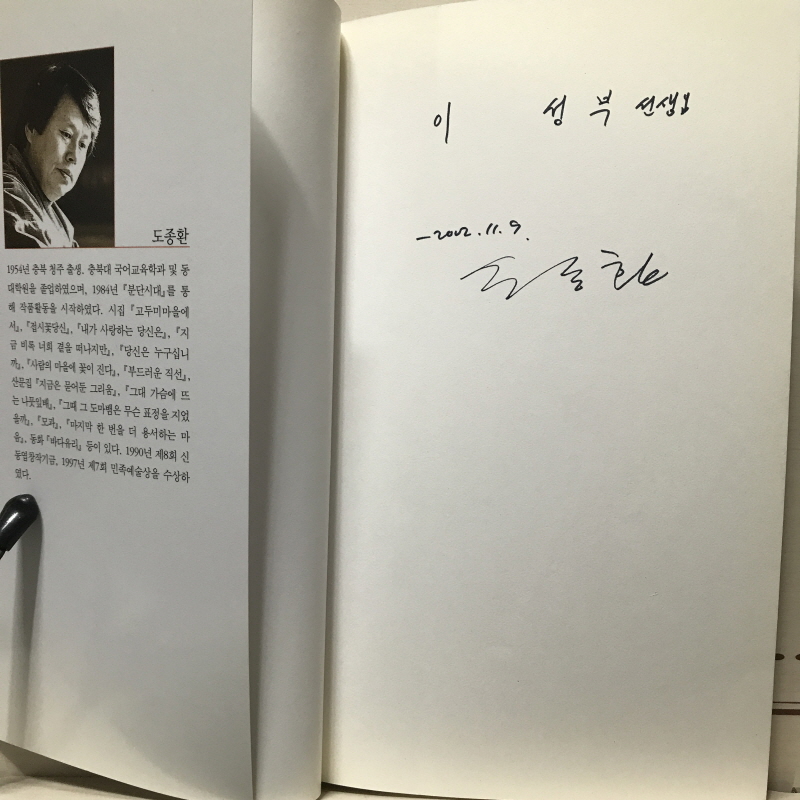 도종환
1954년 충북 청주 출생. 충북대 국어교육학과 및 동
대학원을 졸업하였으며, 1984년 『분단시대』를 통
해 작품활동을 시작하였다. 시집 『고두미마을에
서』, 『접시꽃당신』, 『내가 사랑하는 당신은』, 『지
금 비록 너희 곁을 떠나지만』, 『당신은 누구십니
까』, 『사람의 마을에 꽃이 진다』, 『부드러운 직선』,
산문집 『지금은 묻어둔 그리움』, 『그대 가슴에 뜨
는 나뭇잎배』, 『그때 그 도마뱀은 무슨 표정을 지었
을까』, 『모과』, 『마지막 한 번을 더 용서하는 마
음』, 동화 『바다유리』 등이 있다. 1990년 제8회 신
동엽창작기금, 1997년 제7회 민족예술상을 수상하
였다.
이 성부 선생님
-2002. 11. 9.
도종환